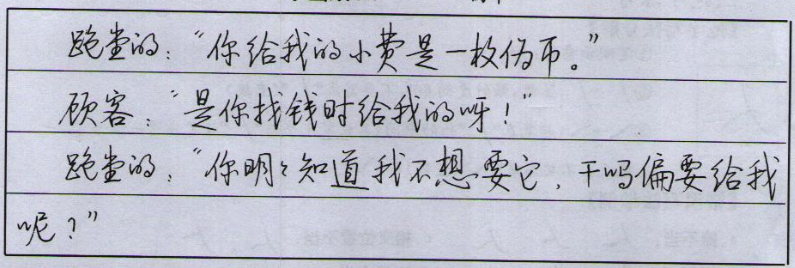 跑堂的："你给我的小费是一枚伪币。"
顾客："是你找钱时给我的呀！"
跑堂的："你明々知道我不想要它，干吗偏要给我
呢？"